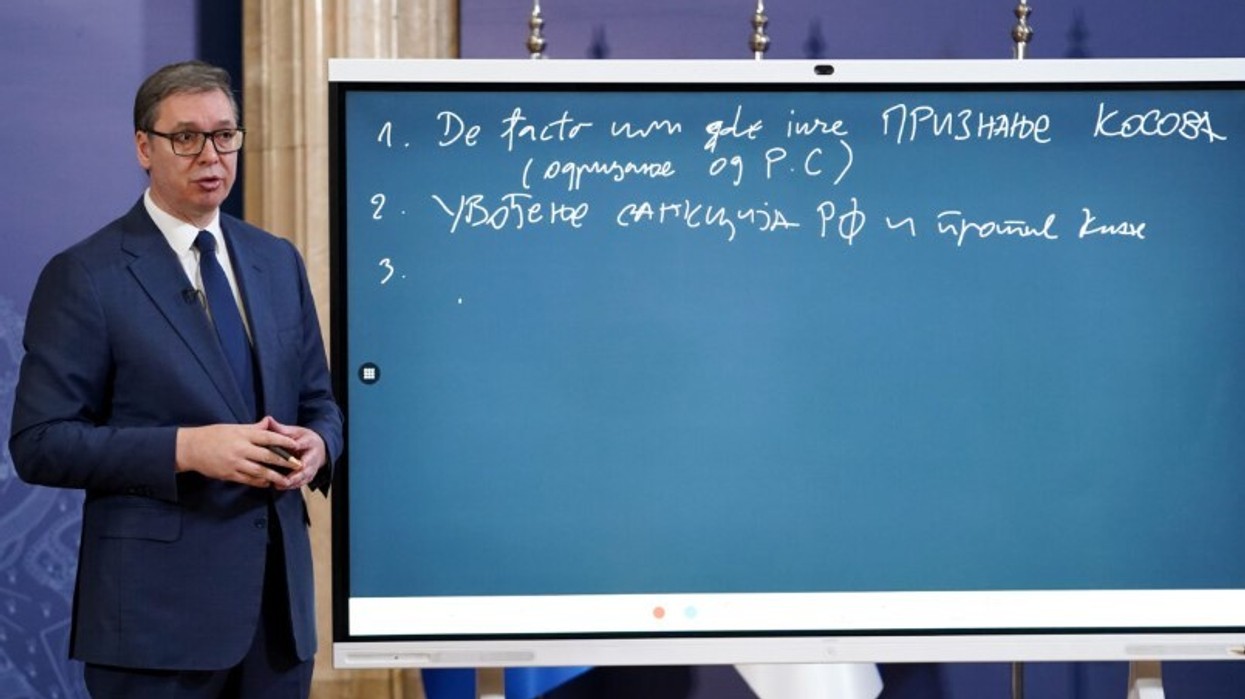 1. De facto или de iure ПРИЗНАЊЕ КОСОВА
(одрицање од Р.С)
2. УВОЂЕЊЕ САНКЦИЈА РФ и против Кине
3.